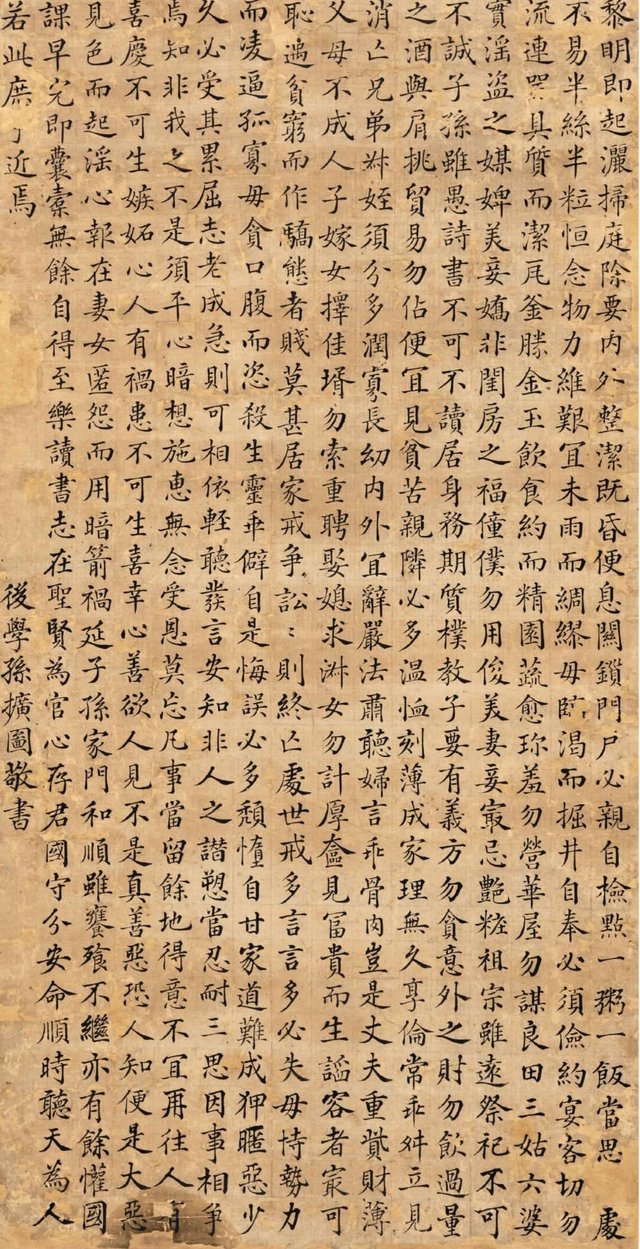 黎明即起灑掃庭除要內外整潔既昏便息關鎖門戶必親自檢點一粥一飯當思處
不易半絲半粒恒念物力維艱宜未雨而綢繆毋臨渴而掘井自奉必須儉約宴客切勿
流連器具質而潔瓦釜勝金玉飲食約而精園蔬愈珍羞勿營華屋勿謀良田三姑六婆
實淫盜之媒婢美妾嬌非閨房之福僮僕勿用俊美妻妾最忌艷粧祖宗雖遠祭祀不可
不誠子孫雖愚詩書不可不讀居身務期質樸教子要有義方勿貪意外之財勿飲過量
之酒與肩挑貿易勿佔便宜見貧苦親隣必多溫恤刻薄成家理無久享倫常乖舛立見
消亡兄弟叔姪須分多潤寡長幼內外宜辭嚴法肅聽婦言乖骨肉豈是丈夫重貲財薄
父母不成人子嫁女擇佳壻勿索重聘娶媳求淑女勿計厚奩見富貴而生諂容者最可
恥遇貧窮而作驕態者賤莫甚居家戒爭訟〻則終亡處世戒多言言多必失毋恃勢力
而凌逼孤寡毋貪口腹而恣殺生靈乖僻自是悔誤必多頹惰自甘家道難成狎暱惡少
久必受其累屈志老成急則可相依輕聽發言安知非人之譖愬當忍耐三思因事相爭
焉知非我之不是須平心暗想施惠無念受恩莫忘凡事當留餘地得意不宜再往人
喜慶不可生嫉妬心人有禍患不可生喜幸心善欲人見不是真善惡恐人知便是大惡
見色而起淫心報在妻女匿怨而用暗箭禍延子孫家門和順雖饔飧不繼亦有餘懽國
課早完即囊橐無餘自得至樂讀書志在聖賢為官心存君國守分安命順時聽天為人
若此庶近焉
後學孫擴圖敬書